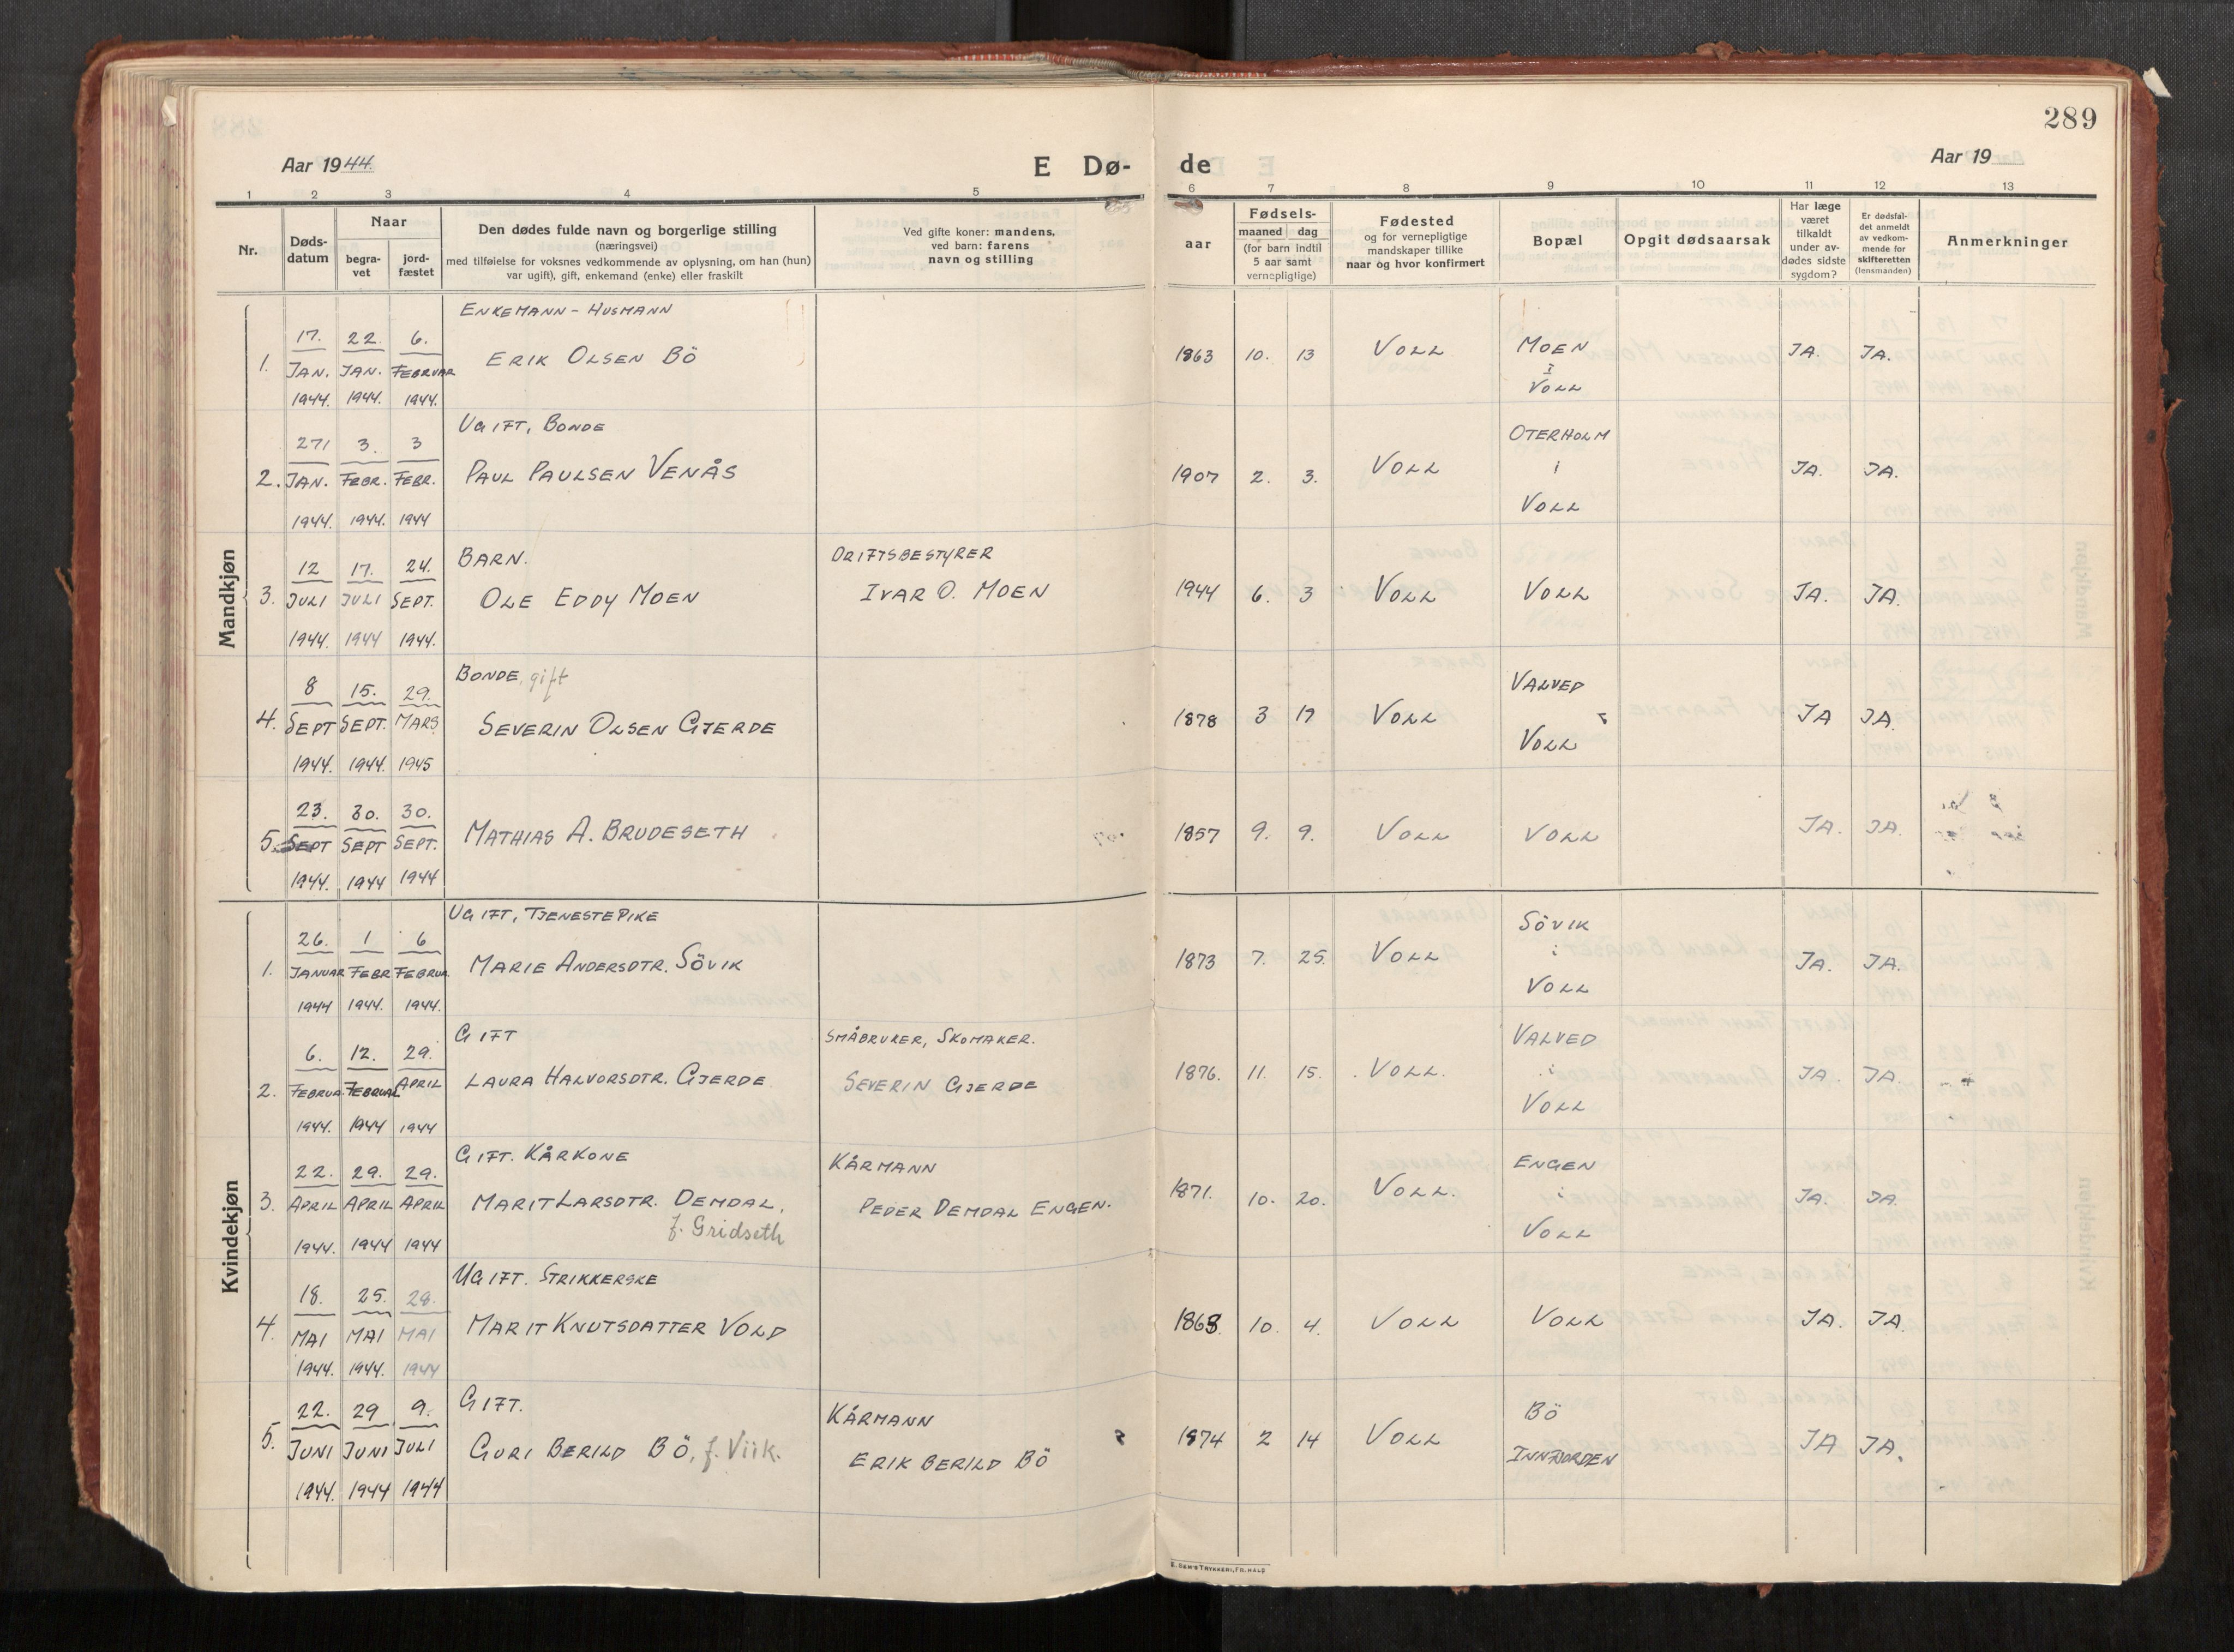 289
Aar 1944.
E Dø-
de
Aar 19
1 2 3 4 5 6 7 8 9 10 11 12 13
Nr.
Døds-
datum
Naar
begra-
vet
jord-
fæstet
Den dødes fulde navn og borgerlige stilling
(næringsvei)
med tilføielse for voksnes vedkommende av oplysning, om han (hun)
var ugift), gift, enkemand (enke) eller fraskilt
Ved gifte koner: mandens,
ved barn: farens
navn og stilling
aar
Fødsels-
maaned dag
(for barn indtil
5 aar samt
vernepligtige)
Fødested
og for vernepligtige
mandskaper tillike
naar og hvor konfirmert
Bopæl
Opgit dødsaarsak
Har læge
været
tilkaldt
under av-
dødes sidste
sygdom?
Er dødsfal-
det anmeldt
av vedkom-
mende for
skifteretten
(lensmanden)
Anmerkninger
Mandkjøn
ENKEMANN - HUSMANN
17. 22. 6. MOEN
1. ERIK OLSEN BÖ 1863 10. 13 VOLL I JA. JA.
JAN. JAN. FEBRUAR VOLL
1944. 1944. 1944.
UGIFT, BONDE OTERHOLM
271 3. 3
2. JAN. FEBR. FEBR. PAUL PAULSEN VENÅS 1907 2. 3. VOLL i JA. JA.
1944. 1944. 1944 VOLL
BARN. DRIFTSBESTYRER
12 17. 24.
3. JULI JULI SEPT. OLE EDDY MOEN IVAR O. MOEN 1944 6. 3 VOLL VOLL JA. JA.
1944. 1944 1944.
BONDE, gift VALVED
8 15. 29.
4. SEPT SEPT. MARS SEVERIN OLSEN GJERDE 1878 3 19 VOLL JA JA.
1944. 1944. 1945 VOLL
23. 30. 30.
5. SEPT SEPT SEPT. MATHIAS A. BRUDESETH 1857 9. 9. VOLL VOLL JA. JA.
1944. 1944 1944
Kvindekjøn
UGIFT, TJENESTEPIKE SÖVIK
26. 1 6
1. JANUAR FEBR FEBRUA. MARIE ANDERSDTR. SÖVIK 1873 7. 25. VOLL i JA. JA.
1944 1944. 1944. VOLL
GIFT SMÅBRUKER, SKOMAKER. VALVED
6. 12. 29.
2. FEBRUA. FEBRUAR APRIL LAURA HALVORSDTR. GJERDE SEVERIN GJERDE 1876. 11. 15. VOLL. i JA. JA.
1944. 1944 1944 VOLL
GIFT. KÅRKONE KÅRMANN ENGEN
22. 29. 29.
3. APRIL APRIL APRIL MARIT LARSDTR. DEMDAL, PEDER DEMDAL ENGEN. 1871. 10. 20. VOLL. i JA. JA.
f. Gridseth
1944. 1944 1944 VOLL
UGIFT. STRIKKERSKE
18. 25. 28.
4. MAI MAI MAI MARIT KNUTSDATTER VOLD 1868. 10. 4. VOLL VOLL JA. JA.
1944. 1944. 1944
GIFT. KÅRMANN BÖ
22. 29 9.
5. JUNI JUNI JULI GURI BERILD BÖ, f. Viik. ERIK BERILD BÖ 1874 2 14 VOLL INNFJORDEN JA JA.
1944. 1944 1944
E. SEM'S TRYKKERI, FR.HALD